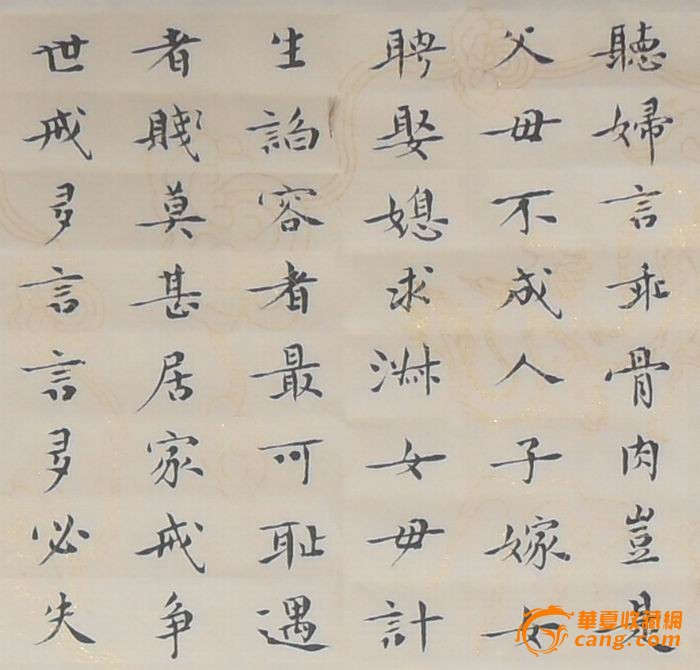 聽婦言乖骨肉豈是
父毋不成人子嫁女
聘娶媳求淑女毋計
生諂容者最可耻遇
者賤莫甚居家戒争
世戒多言言多必失
華夏收藏網
cang.com